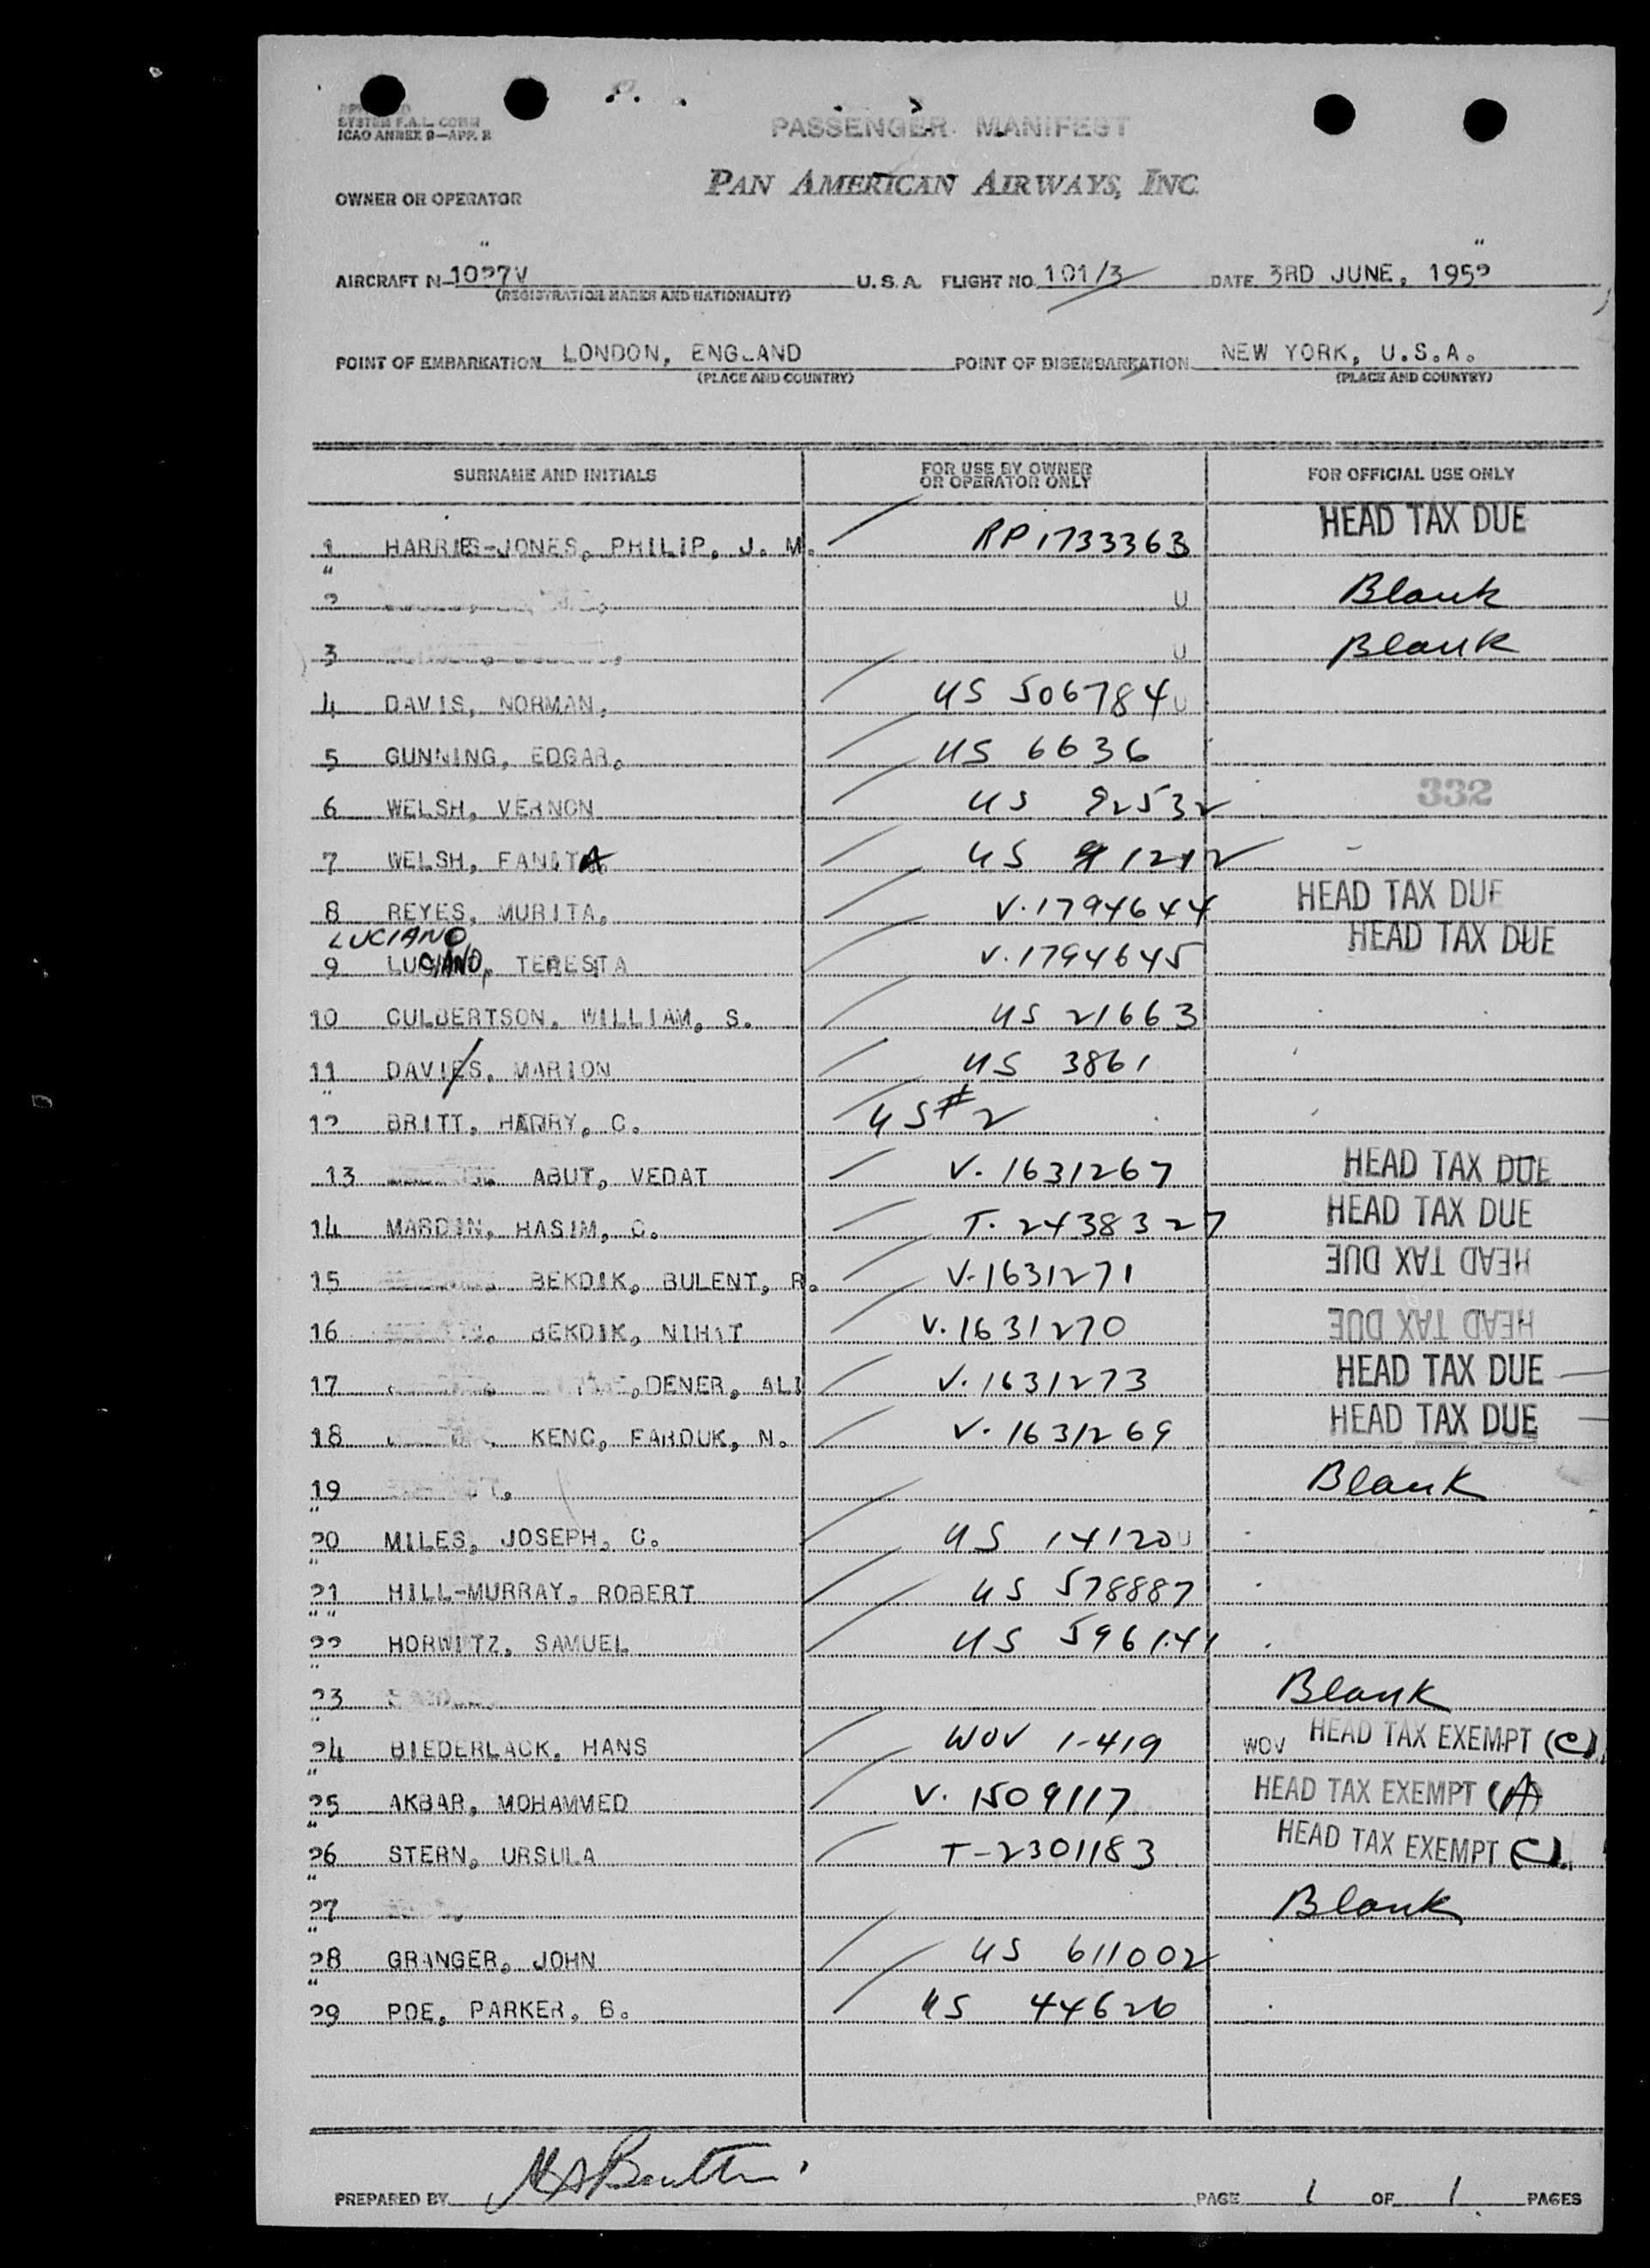 SYSTEM F.A.L. COMM
ICAO ANNEX 9—APP. 2
PASSENGER MANIFEST
PAN AMERICAN AIRWAYS, INC.
OWNER OR OPERATOR
AIRCRAFT N-1027V U.S.A. FLIGHT NO. 101/3 DATE 3RD JUNE, 1952
(REGISTRATION MARKS AND NATIONALITY)
POINT OF EMBARKATION LONDON, ENGLAND POINT OF DISEMBARKATION NEW YORK, U.S.A.
(PLACE AND COUNTRY) (PLACE AND COUNTRY)
SURNAME AND INITIALS FOR USE BY OWNER OR OPERATOR ONLY FOR OFFICIAL USE ONLY
1 HARRIES-JONES, PHILIP, J. M. RP 1733363 HEAD TAX DUE
2 U Blank
3 U Blank
4 DAVIS, NORMAN, US 506784 U
5 GUNNING, EDGAR, US 6636
6 WELSH, VERNON US 92532 332
7 WELSH, FANITA US 91212
8 REYES, MURITA, V.1794644 HEAD TAX DUE
LUCIANO
9 LUCIANO, TERESTA V.1794645 HEAD TAX DUE
10 CULBERTSON, WILLIAM, S. US 21663
11 DAVIES, MARION US 3861
12 BRITT, HENRY, C. US #2
13 ABUT, VEDAT V. 1631267 HEAD TAX DUE
14 MARDIN, HASIM, C. T. 2438327 HEAD TAX DUE
15 BEKDIK, BULENT, R. V.1631271 HEAD TAX DUE
16 BEKDIK, NIHAT V.1631270 HEAD TAX DUE
17 DENER, ALI V.1631273 HEAD TAX DUE
18 KENC, FAROUK, N. V. 1631269 HEAD TAX DUE
19 Blank
20 MILES, JOSEPH, C. US 14120 U
21 HILL-MURRAY, ROBERT US 578887
22 HORWITZ, SAMUEL US 596141
23 Blank
24 BIEDERLACK, HANS WOV 1-419 WOV HEAD TAX EXEMPT (C)
25 AKBAR, MOHAMMED V. 1509117 HEAD TAX EXEMPT (A)
26 STERN, URSULA T-2301183 HEAD TAX EXEMPT (C)
27 Blank
28 GRANGER, JOHN US 611002
29 POE, PARKER, B. US 44626
PREPARED BY PAGE 1 OF 1 PAGES